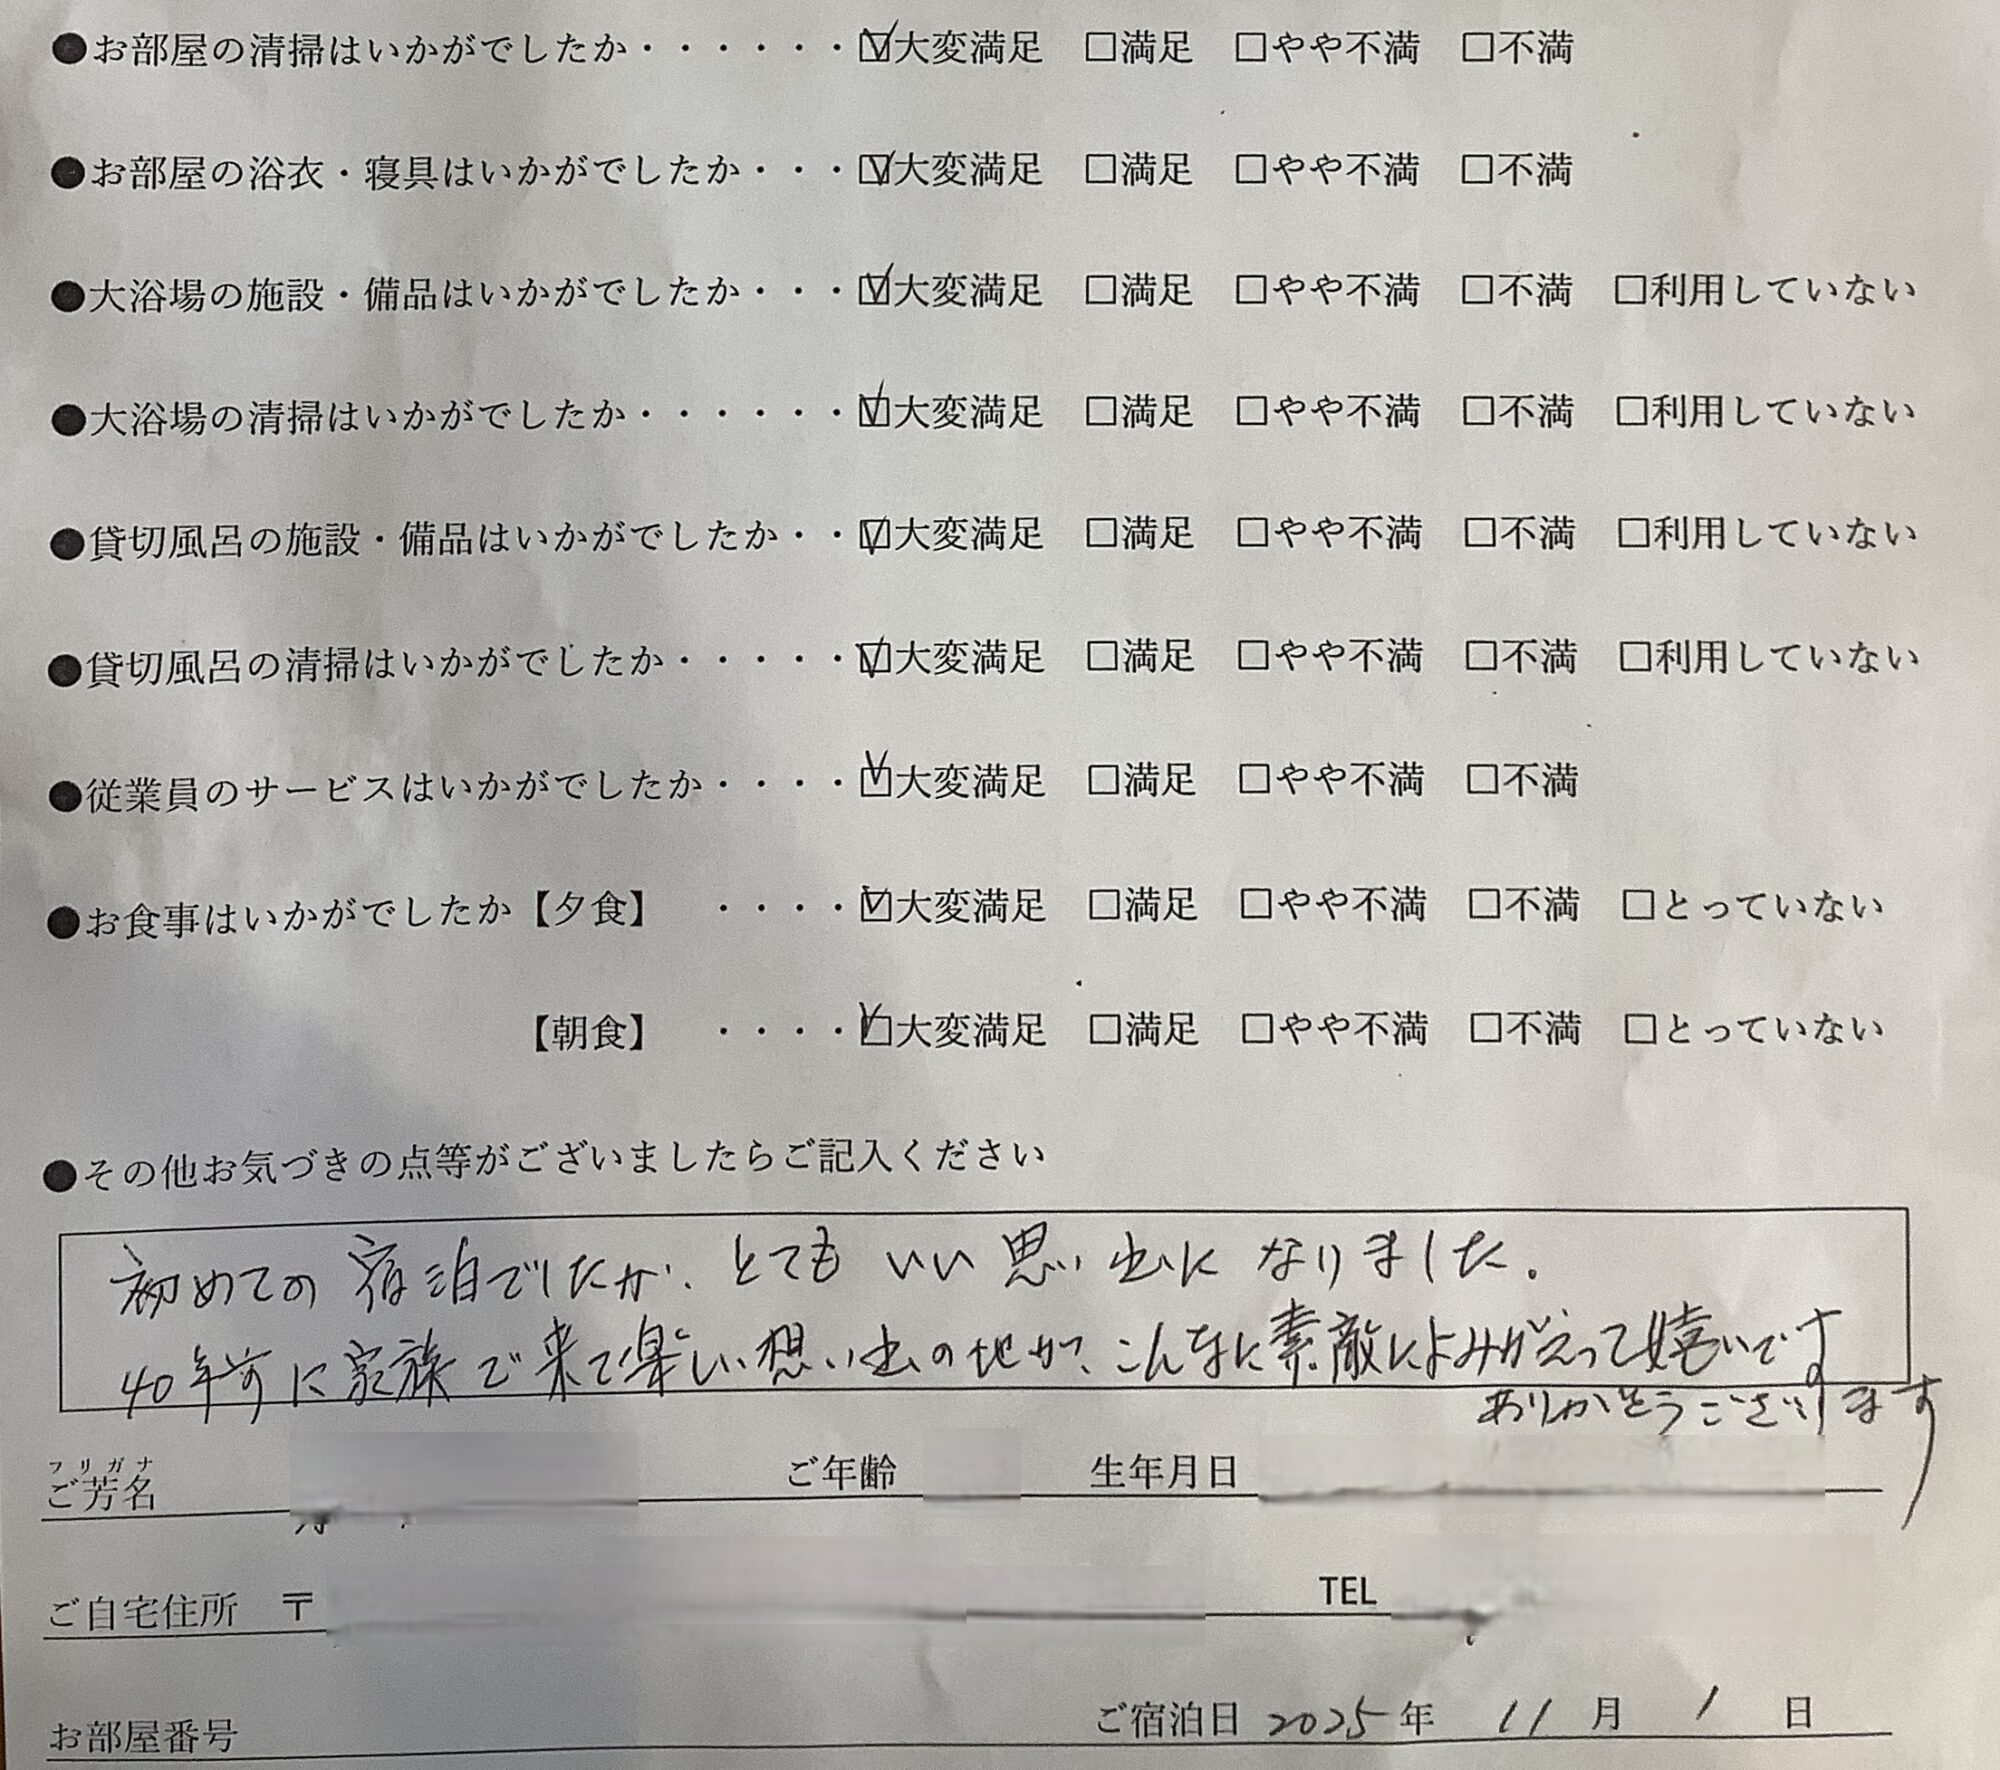 ●お部屋の清掃はいかがでしたか・・・・・・☑大変満足 □満足 □やや不満 □不満
●お部屋の浴衣・寝具はいかがでしたか・・・☑大変満足 □満足 □やや不満 □不満
●大浴場の施設・備品はいかがでしたか・・・☑大変満足 □満足 □やや不満 □不満 □利用していない
●大浴場の清掃はいかがでしたか・・・・・・☑大変満足 □満足 □やや不満 □不満 □利用していない
●貸切風呂の施設・備品はいかがでしたか・・☑大変満足 □満足 □やや不満 □不満 □利用していない
●貸切風呂の清掃はいかがでしたか・・・・・☑大変満足 □満足 □やや不満 □不満 □利用していない
●従業員のサービスはいかがでしたか・・・・☑大変満足 □満足 □やや不満 □不満
●お食事はいかがでしたか【夕食】 ・・・・☑大変満足 □満足 □やや不満 □不満 □とっていない
【朝食】 ・・・・☑大変満足 □満足 □やや不満 □不満 □とっていない
●その他お気づきの点等がございましたらご記入ください
初めての宿泊でしたが、とてもいい思い出になりました.
40年前に家族で来て楽しい想い出の地が、こんなに素敵によみがえって嬉いです
ありがとうございます
フリガナ
ご芳名 ご年齢 生年月日
ご自宅住所 〒 TEL
お部屋番号 ご宿泊日 2025年 11月 1日